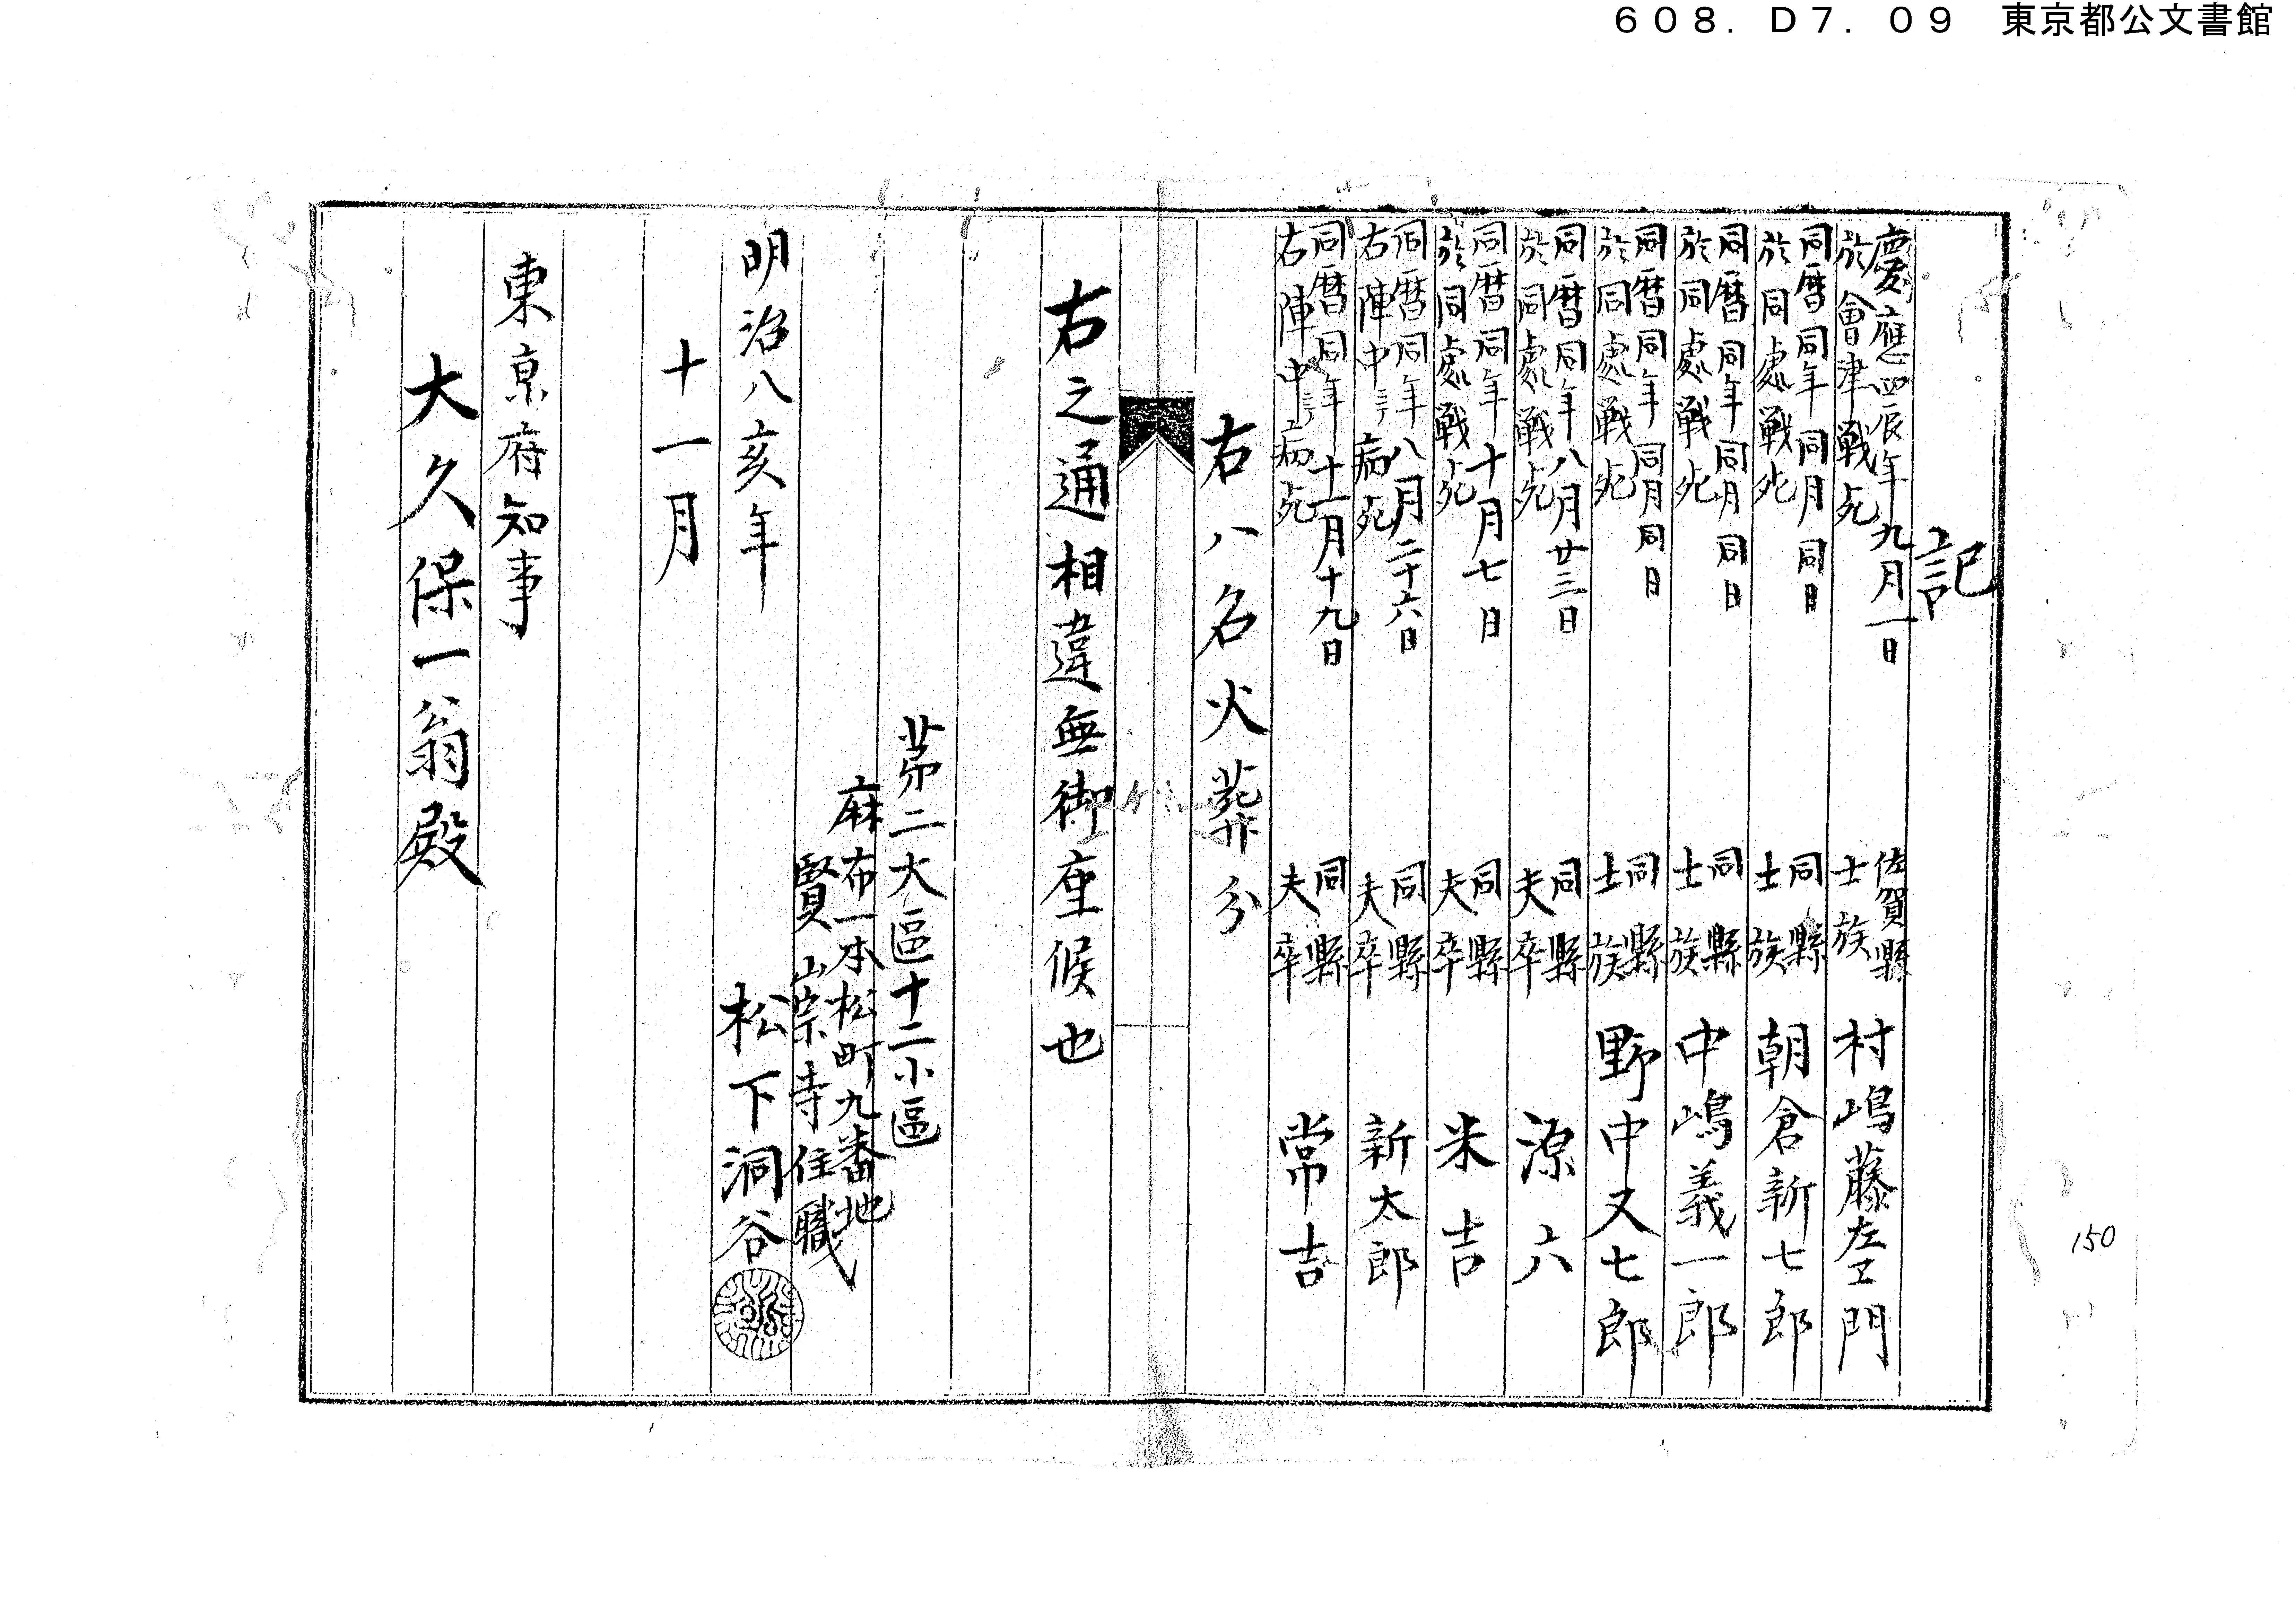 ６０８．Ｄ７．０９　東京都公文書館
記
慶應四辰年九月一日
於會津戦死
佐賀縣
士族
村嶋藤左エ門
同暦同年同月同日
於同處戦死
同縣
士族
朝倉新七郎
同暦同年同月同日
於同處戦死
同縣
士族
中嶋義一郎
同暦同年同月同日
於同處戦死
同縣
士族
野中又七郎
同暦同年八月廿三日
於同處戦死
同縣
夫卒
源六
同暦同年十月七日
於同處戦死
同縣
夫卒
米吉
同暦同年八月二十六日
右陣中ニ病死
同縣
夫卒
新太郎
同暦同年十一月十九日
右陣中ニ病死
同縣
夫卒
常吉
右八名火葬分
右之通相違無御座候也
苐二大區十二小區
麻布一本松町九番地
賢山宗寺住職
松下洞谷
明治八亥年
十一月
東京府知事
大久保一翁殿
150